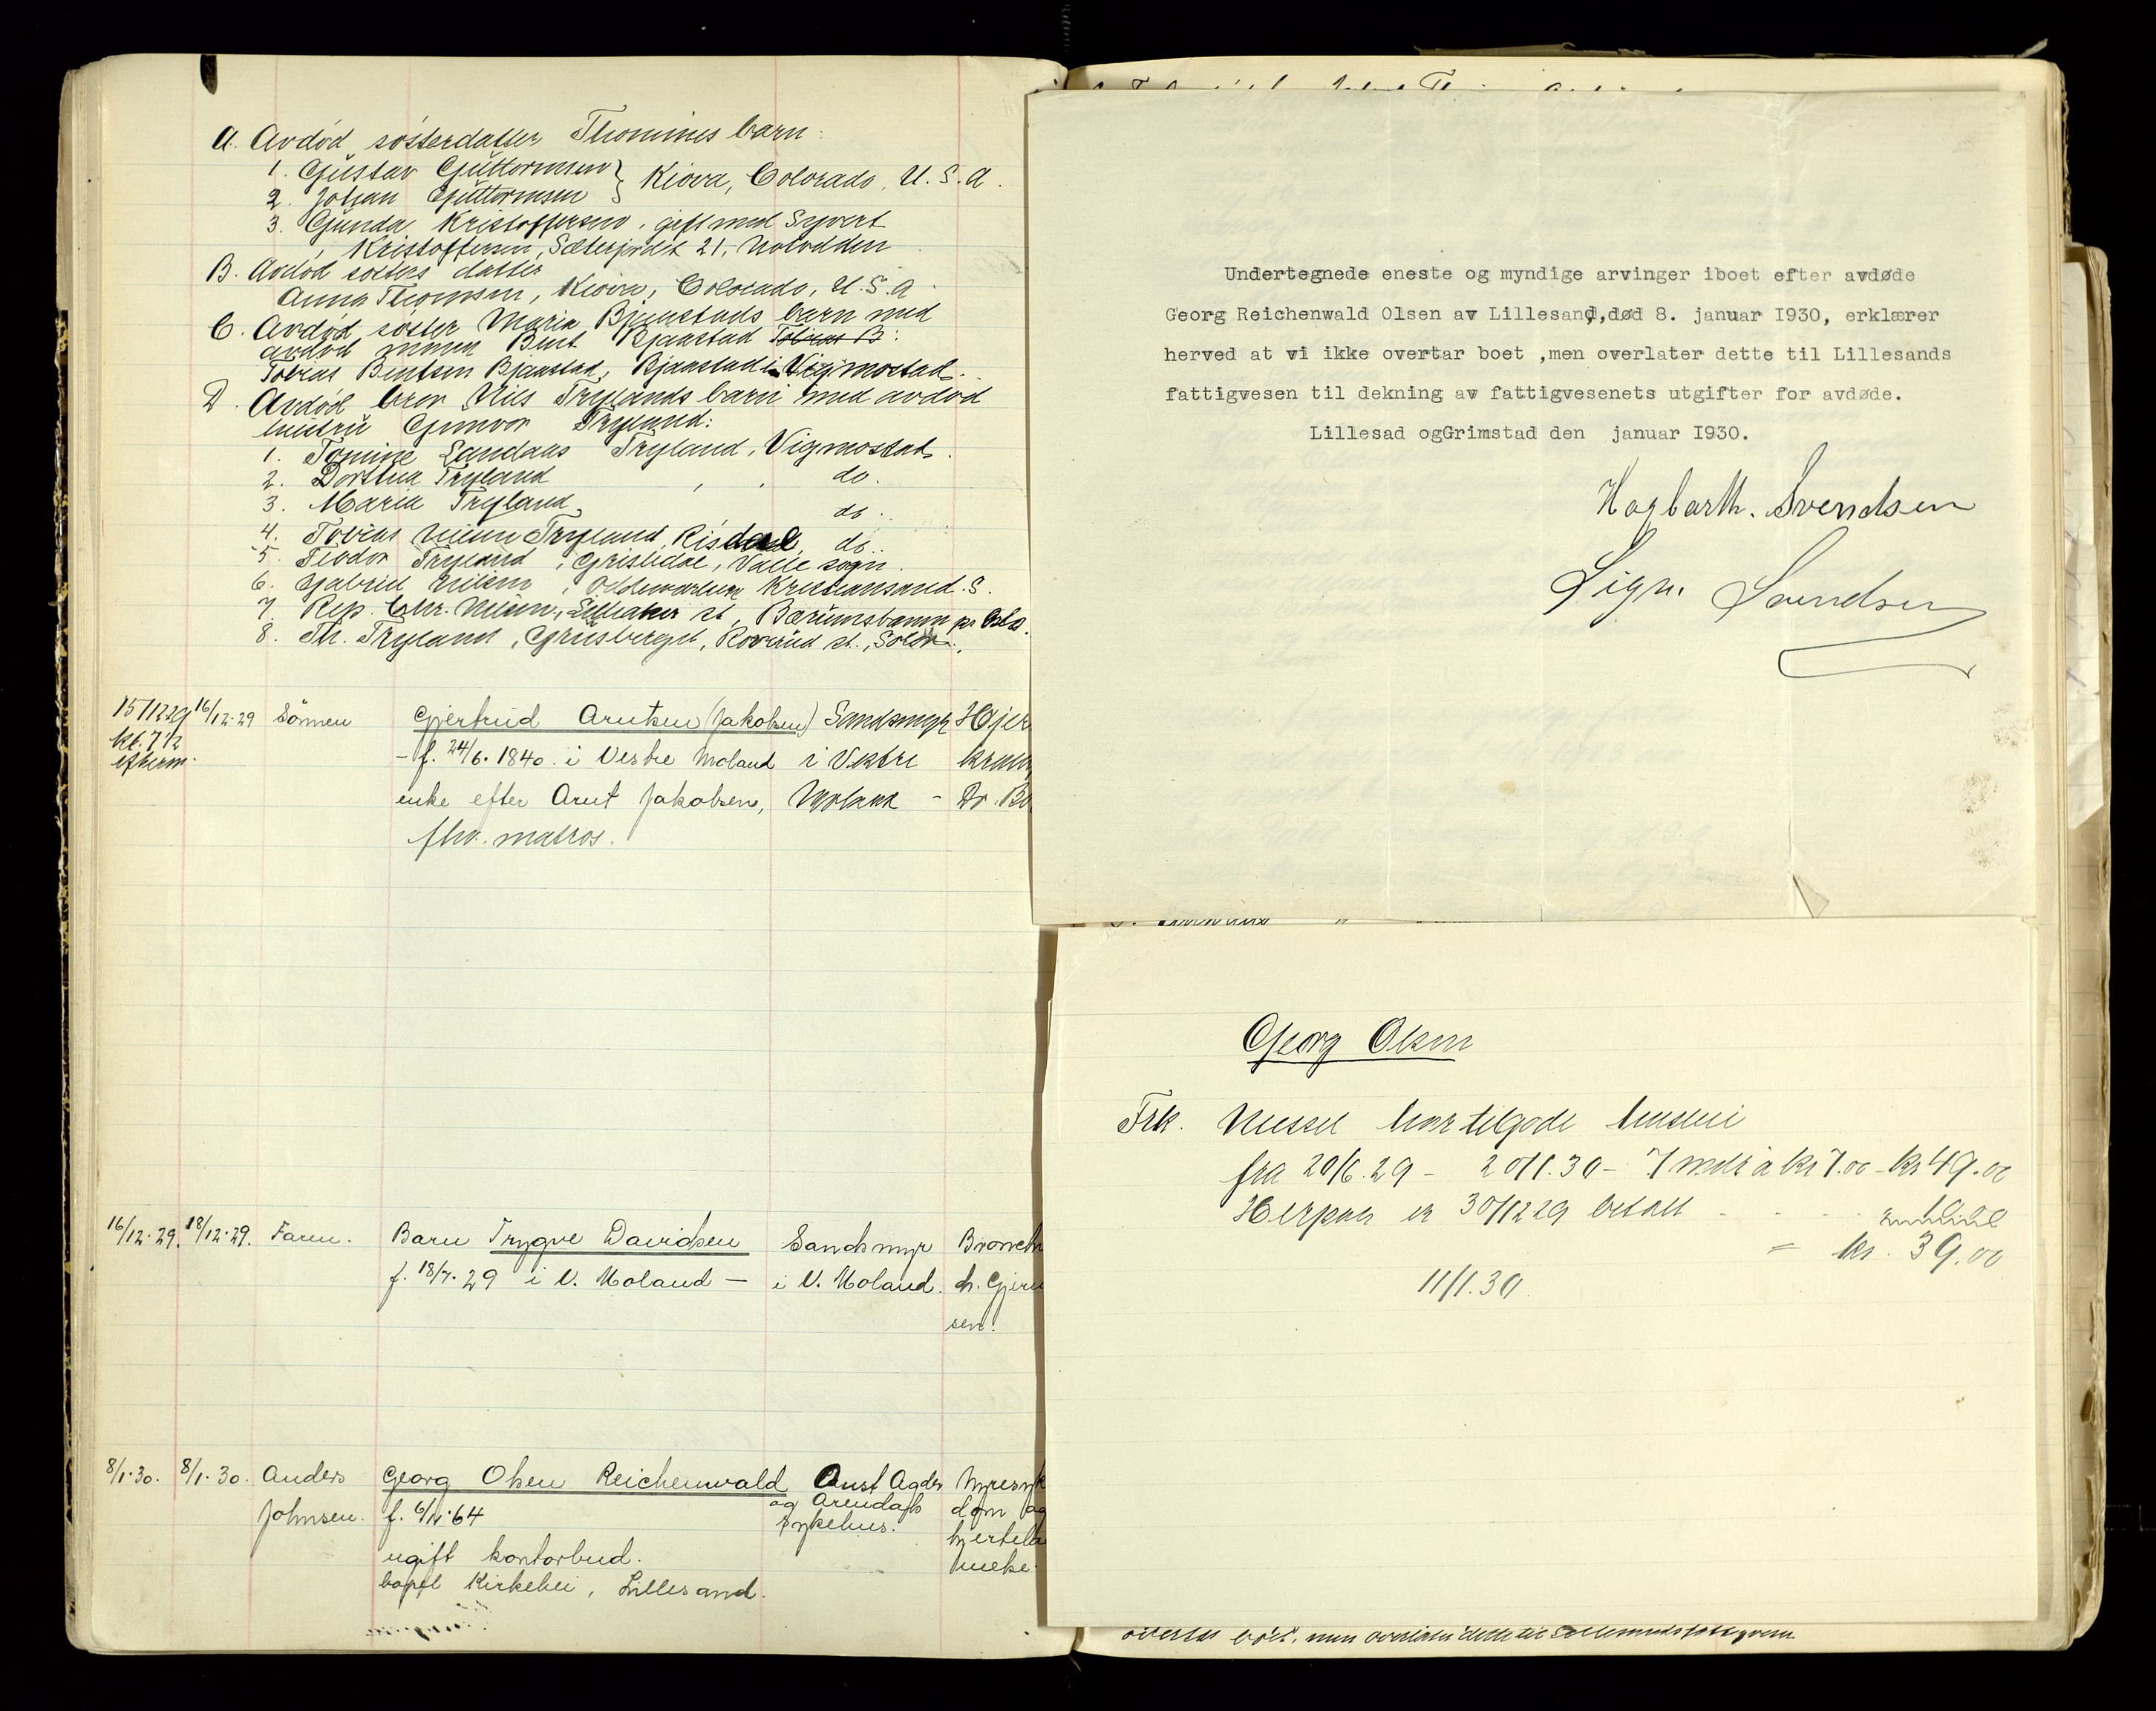 A. Avdød søsterdatter Thomines barn:
1. Gustav Guttormsen
2. Johan Guttormsen } Kiova, Colorado, U.S.A.
3. Gunda Kristoffersen, gift med Syvert
Kristoffersen, Sæterjordet 21, Notodden
B. Avdød søsters datter
Anna Thomsen, Kiova, Colorado, U.S.A.
C. Avdød søster Maria Bjaastads barn med
avdød mann Bent Bjaastad Tobias B:
Tobias Bentsen Bjaastad, Bjaastad i Vigmostad.
D. Avdød bror Nils Trylands barn med avdød
hustru Gunvor Tryland:
1. Tomine Landaas Tryland, Vigmostad.
2. Dorthea Tryland do.
3. Maria Tryland do.
4. Tobias Nilsen Tryland, Risdal, do.
5. Teodor Tryland, Grislidal, Valle sogn.
6. Gabriel Nilsen, Kristiansand S.
7. Rep. Chr. Nilsen, st, Bærumsbanen pr Oslo.
8. Th. Tryland, Grüsberget, Roverud st., Solør.
15/12 29 16/12.29 Sønnen Gjertrud Arntsen (Jakobsen) Sandsmyr Hjer
kl. 7 1/2 - f. 24/6.1840 i Vestre Moland i Vestre
efterm. enke efter Arnt Jakobsen, Moland - Dr. Bo
fhv. matros.
16/12.29. 18/12.29. Faren. Barn Trygve Davidsen Sandsmyr Bronch
f. 18/7.29 i V. Moland - i V. Moland. dr. Gjeru
sen.
8/1.30. 8/1.30. Anders Georg Olsen Reichenwald Aust Agder Nyresyk
Johnsen. f. 6/11.64 og Arendals dom og
sykehus. hjertela
ugift kontorbud. melse.
bopel Kirkehei, Lillesand.
Undertegnede eneste og myndige arvinger iboet efter avdøde
Georg Reichenwald Olsen av Lillesand,død 8. januar I930, erklærer
herved at vi ikke overtar boet ,men overlater dette til Lillesands
fattigvesen til dekning av fattigvesenets utgifter for avdøde.
Lillesad ogGrimstad den januar I930.
Hagbarth. Svendsen
Sign. Svendsen
Georg Olsen
Frk. Nussel har tilgode husleie
fra 20/6.29 - 20/1.30 - 7 mdr à kr 7.00 - kr 49.00
Herpaa er 30/12 29 betalt - - - 10.00
= kr. 39.00
11/1.30.
overtar boet, men overlater dette til Lillesands fattigvesen